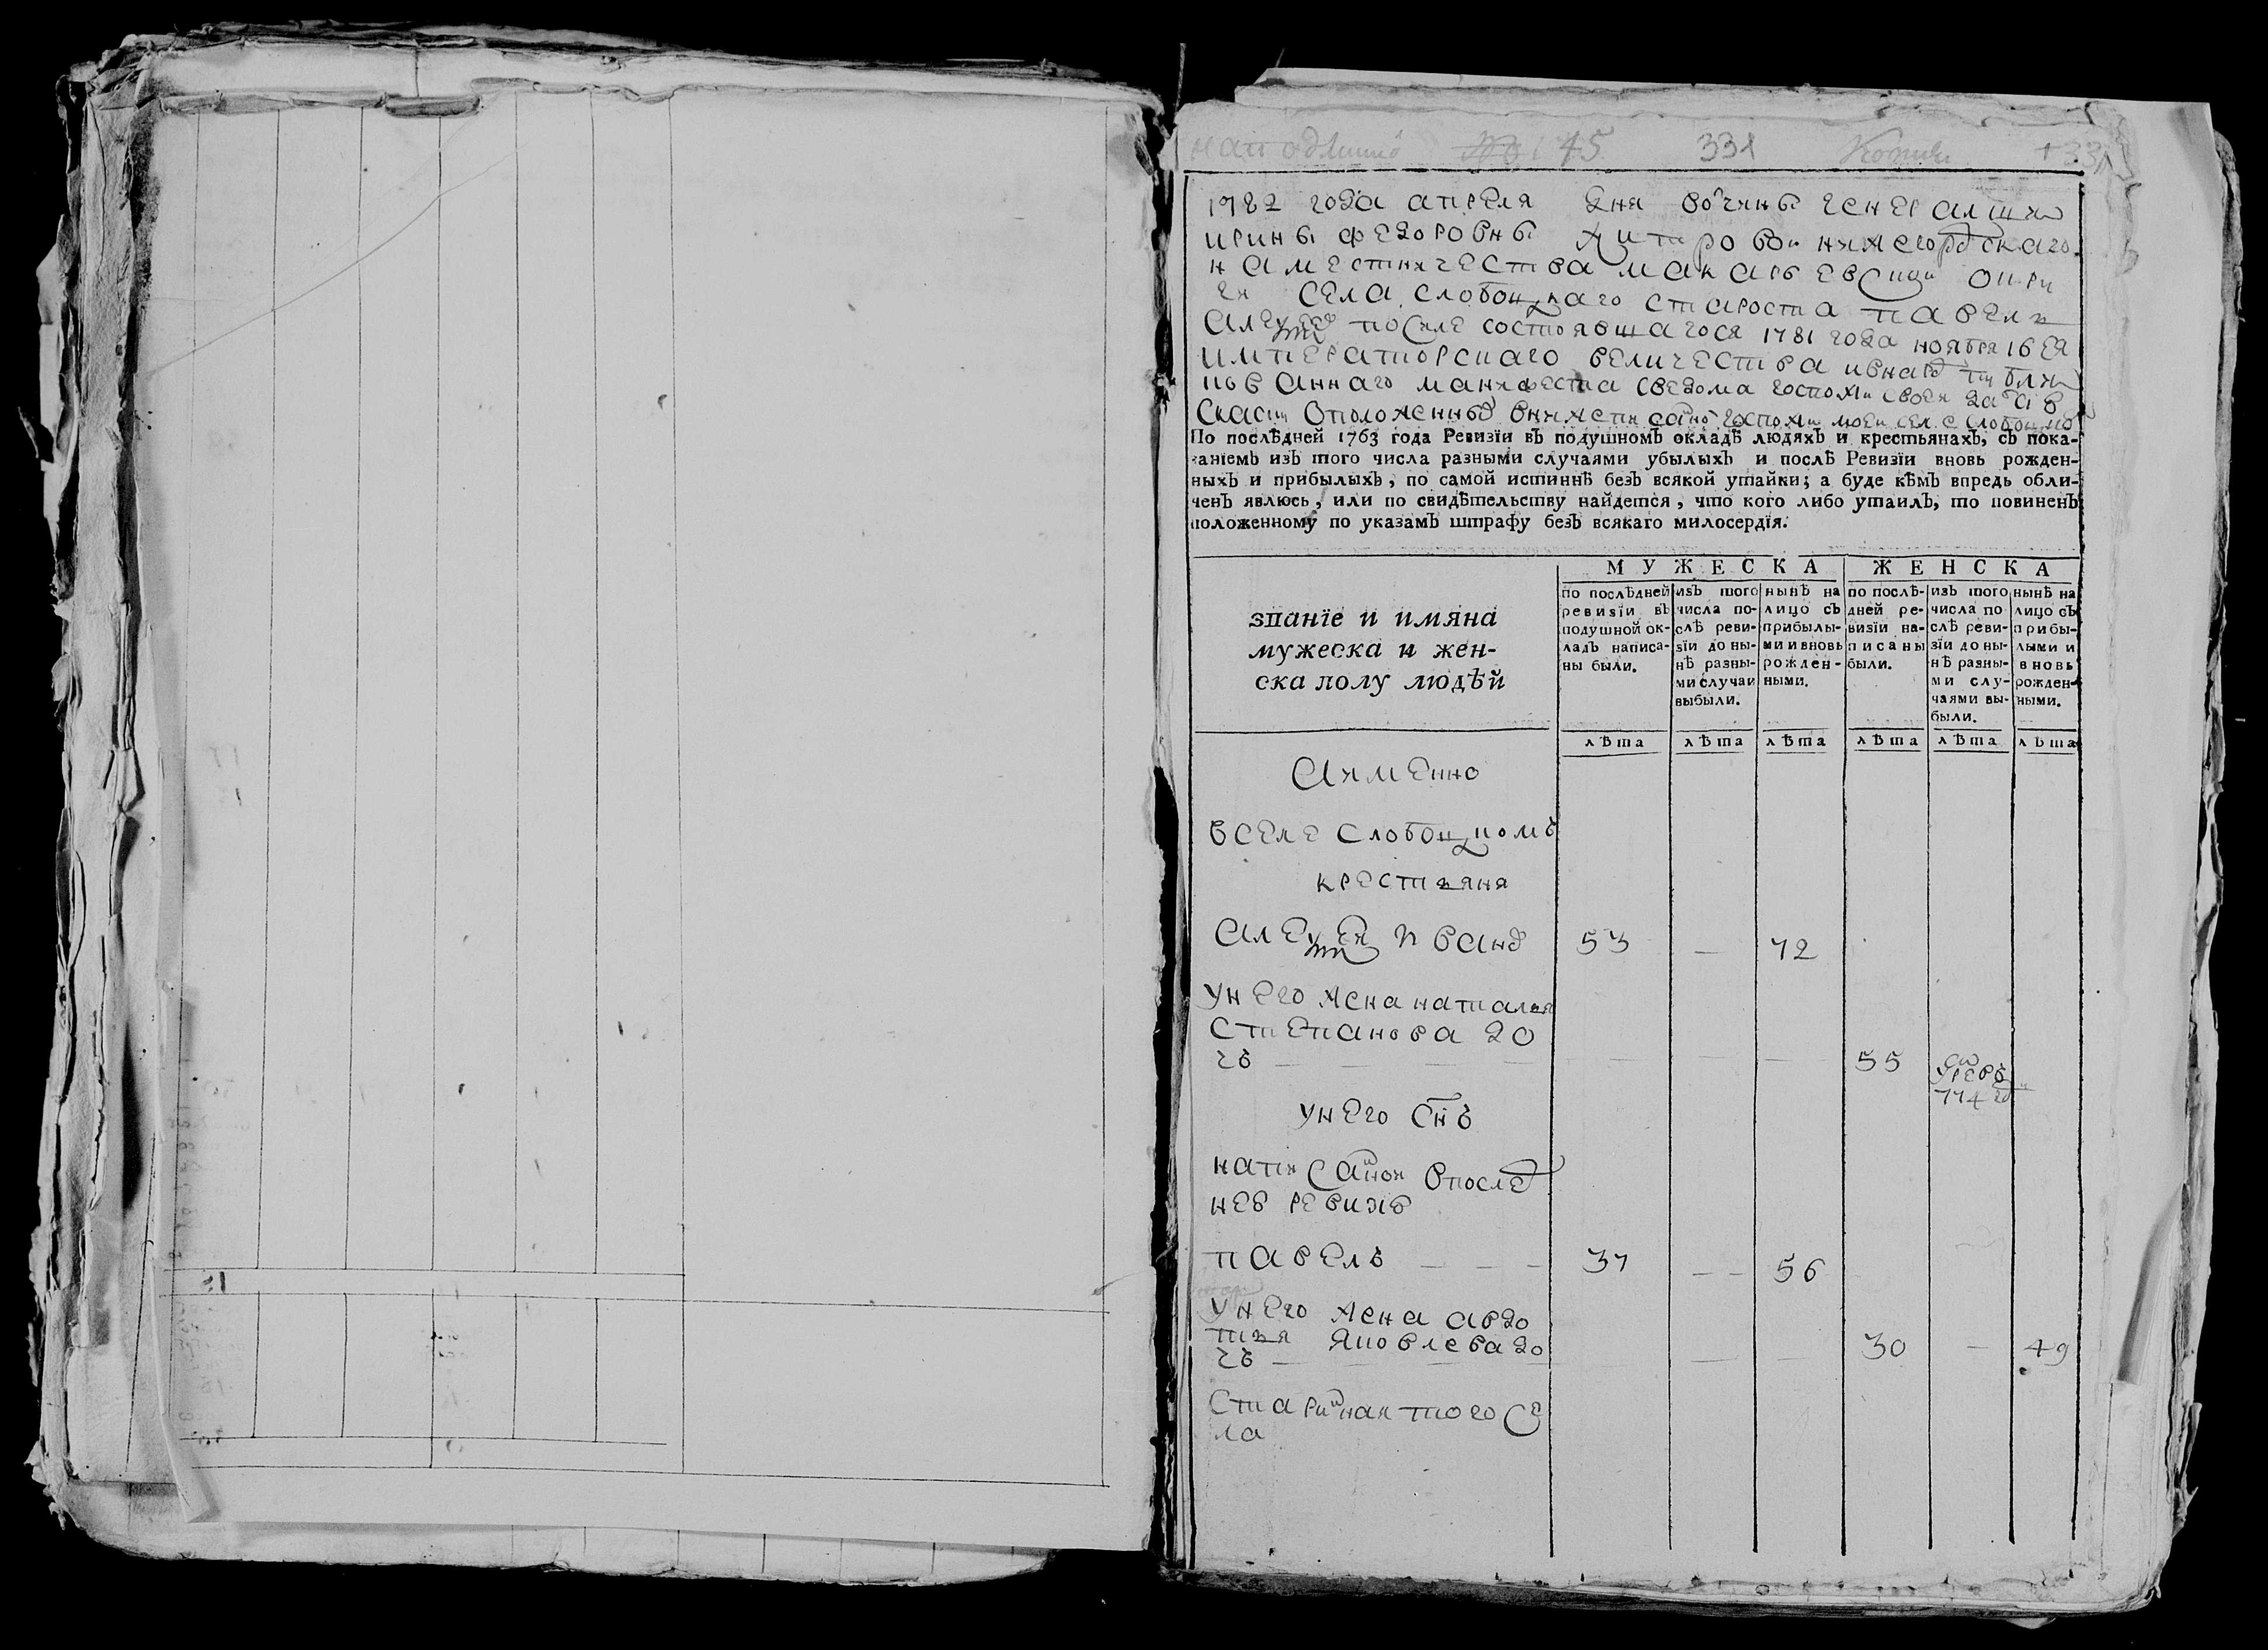 45 331
1782 года апреля дня вочины генералши
ирины федоровны хитрово нижегородскаго
наместничества макарьевской округи
села слободскаго староста павелъ
алексеевъ после состоявшагося 1781 года ноября 16 ея
императорскаго величества и в народ публи
кованнаго манифеста сведома госпожи своей дал сию
скаску о положенныхъ
По послѣдней 1763 года Ревизїи въ подушномъ окладѣ людяхъ и крестьянахъ, съ пока-
занїемъ изъ того числа разными случаями убылыхъ и послѣ Ревизїи вновь рожден-
ныхъ и прибылыхъ, по самой истиннѣ безъ всякой утайки; а буде кѣмъ впредь обли-
ченъ явлюсь, или по свидѣтельству найдется, что кого либо утаилъ, то повиненъ
положенному по указамъ штрафу безъ всякаго милосердїя.
МУЖЕСКА ЖЕНСКА
званїе и имяна
мужеска и жен-
ска полу людѣй
по послѣдней
ревизїи въ
подушной ок-
ладъ написа-
ны были.
изъ того
числа по-
слѣ реви-
зїи до ны-
нѣ разны-
ми случаи
выбыли.
нынѣ на
лицо съ
прибылы-
ми и вновь
рожден-
ными.
по послѣ-
дней ре-
визїи на-
писаны
были.
изъ того
числа по
слѣ реви-
зїи до ны-
нѣ разны-
ми слу-
чаями вы-
были.
нынѣ на
лицо съ
прибы-
лыми и
вновь
рожден-
ными.
лѣта лѣта лѣта лѣта лѣта лѣта
А имѣнно
в селе слободскомъ
крестьяня
алексей иванов 53 — 72
у него жена наталья
степанова до
чь — — — — — — — 55
умерла
774 го
у него снъ
написаной в послед
ней ревизие
павелъ — — — 37 — — 56
у него жена авдо
тья яковлева до
чь — — — — — 30 — 49
старинная того се
ла